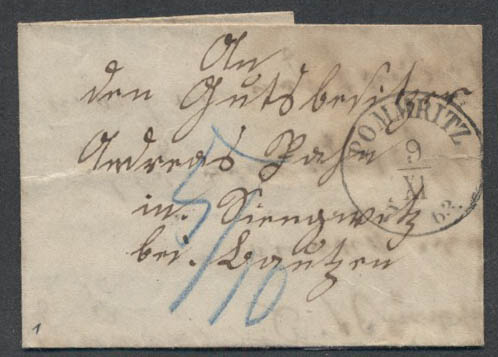 An
den Gutsbesitzer
Andreas Jahn
in
bei. Bautzen
POMMRITZ
9
XI
63.
5/10
1